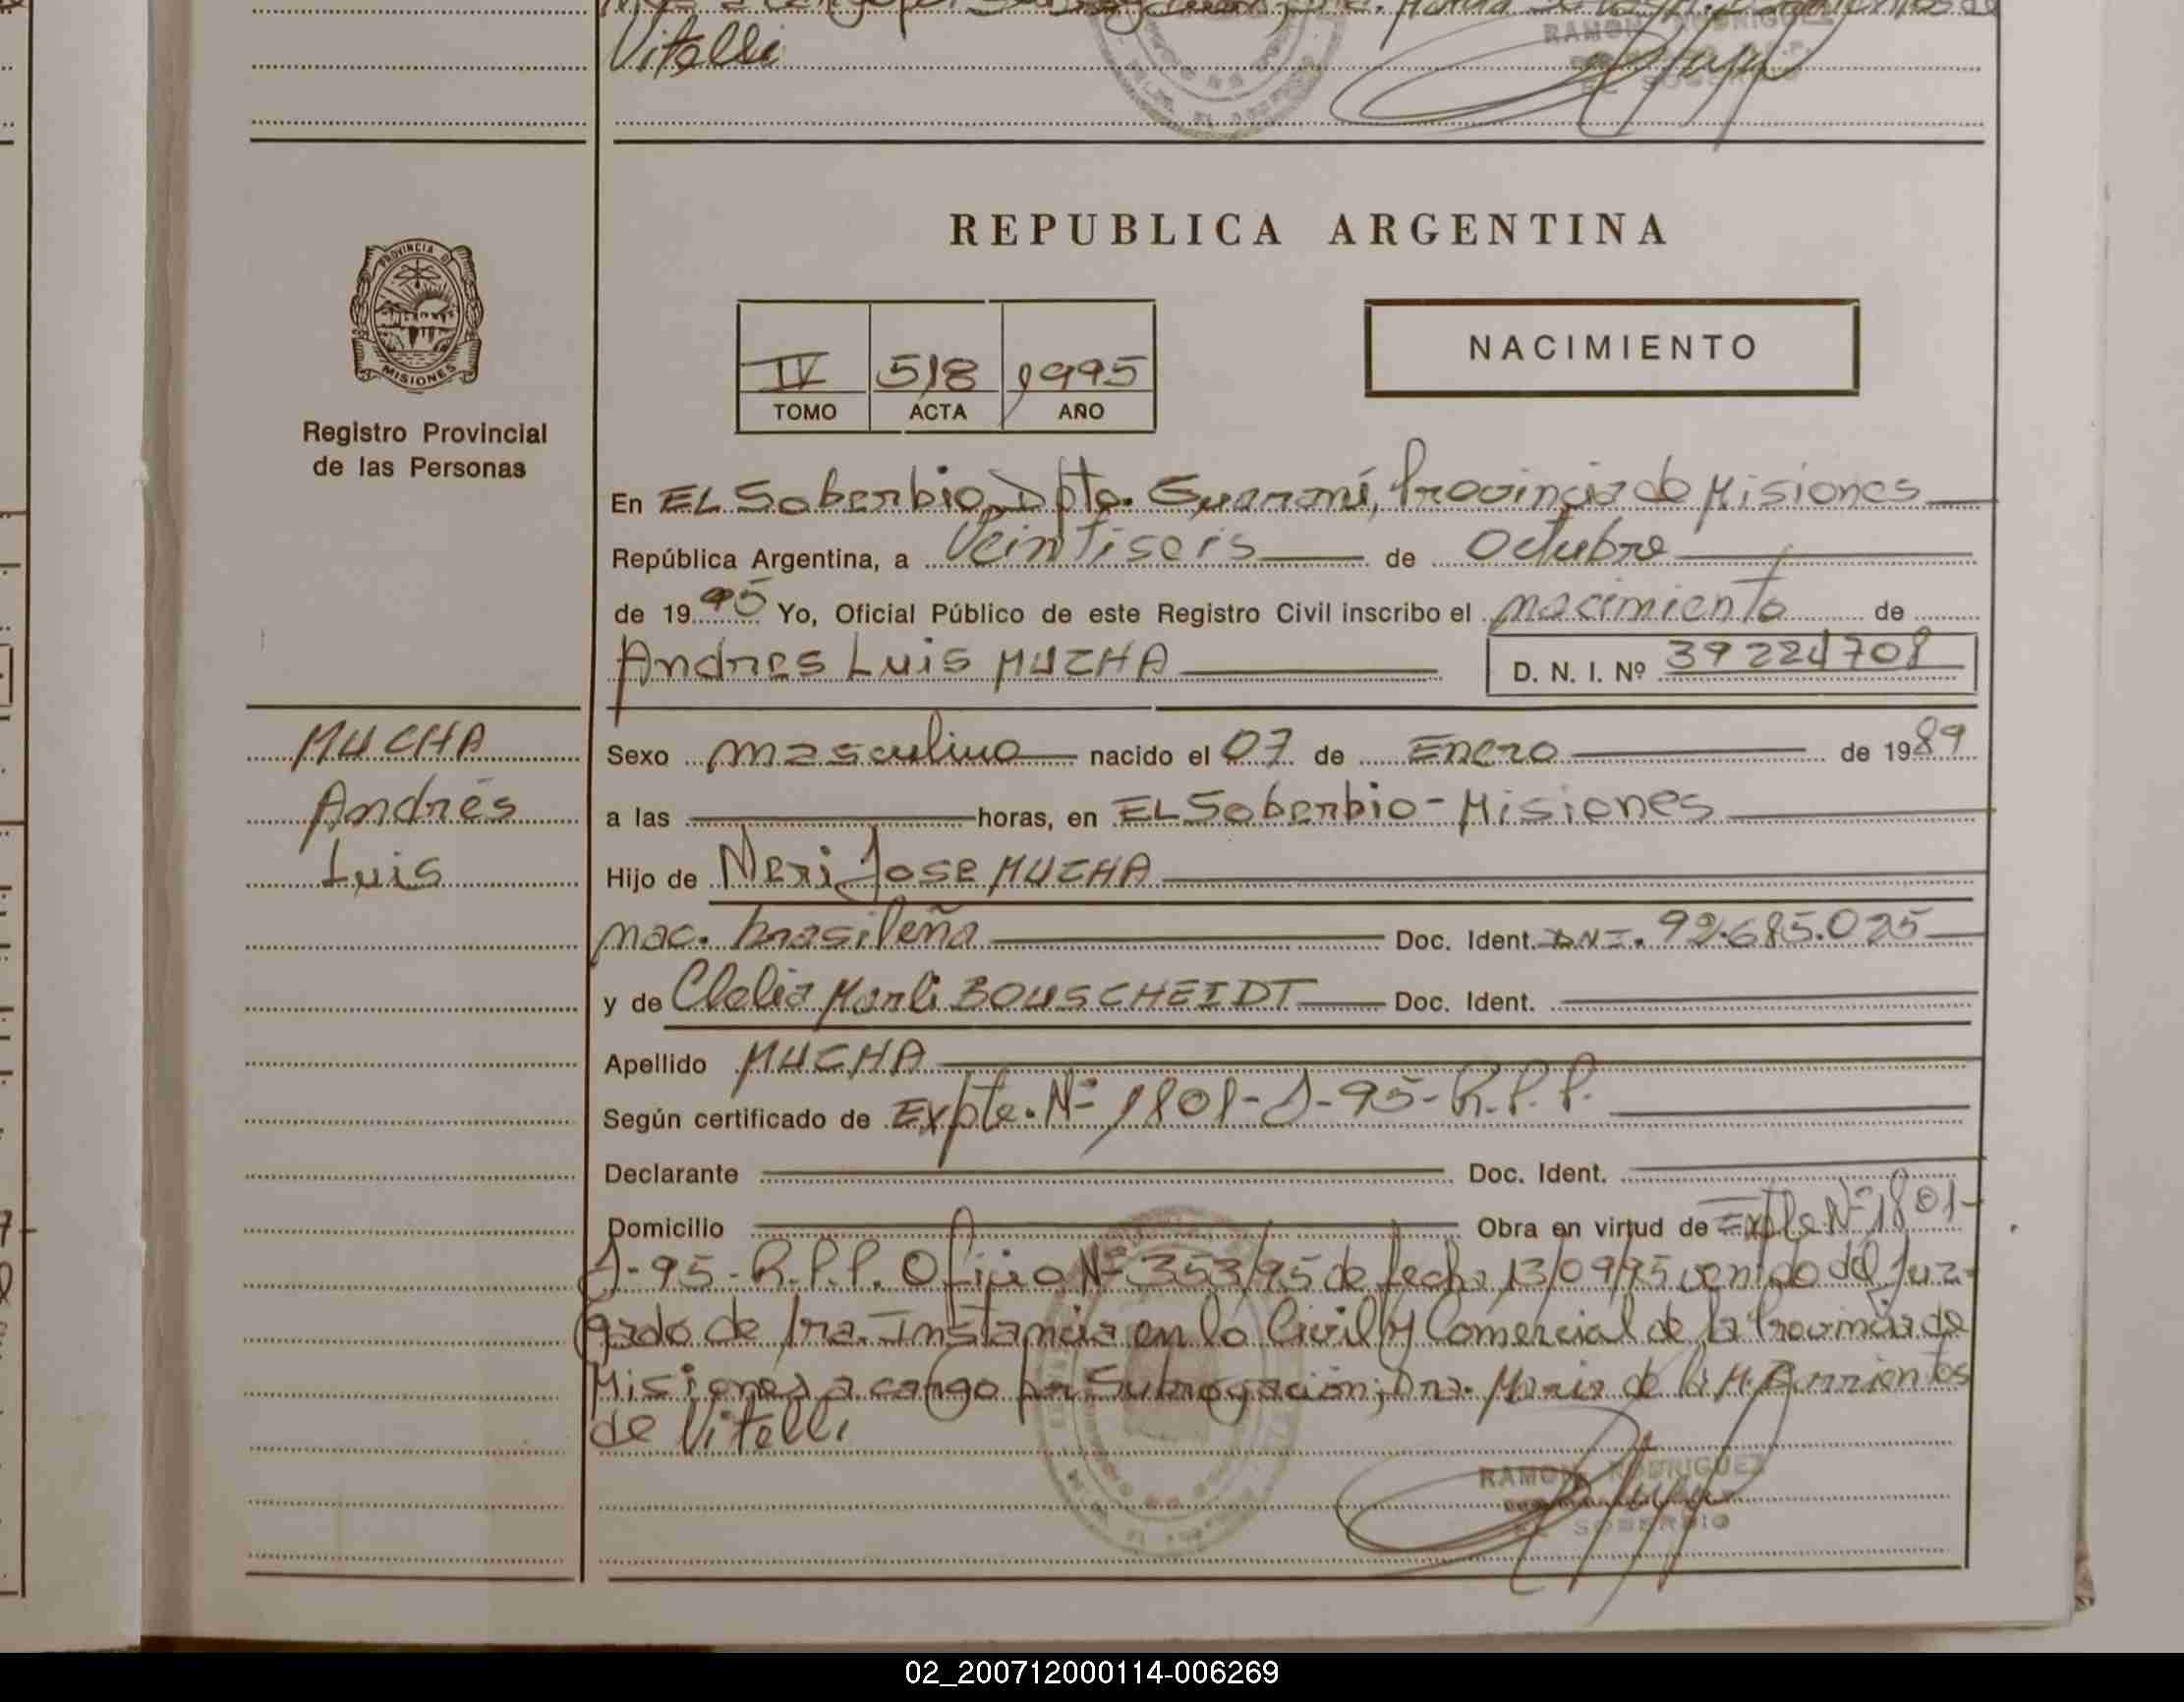 Vitelli
RAMON RODRIGUEZ
EL SOBERBIO
REPUBLICA ARGENTINA
PROVINCIA D
MISIONES
Registro Provincial
de las Personas
IV 518 1995
TOMO ACTA AÑO
NACIMIENTO
En EL Soberbio, Dpto. Guaraní, Provincia de Misiones
República Argentina, a Veintiseis de Octubre
de 1995 Yo, Oficial Público de este Registro Civil inscribo el nacimiento de
Andres Luis MUCHA D. N. I. Nº 39224708
MUCHA
Andrés
Luis
Sexo masculino nacido el 07 de Enero de 1989
a las horas, en EL Soberbio - Misiones
Hijo de Neri Jose MUCHA
nac. brasileña Doc. Ident. DNI. 92.685.025
y de Clelia Marli BOUSCHEIDT Doc. Ident.
Apellido MUCHA
Según certificado de Expte. Nº 1801-J-95-R.P.P.
Declarante Doc. Ident.
Domicilio Obra en virtud de Expte Nº 1801-
J-95-R.P.P. Oficio Nº 353/95 de fecha 13/09/95 venido del Juz-
gado de 1ra. Instancia en lo Civil y Comercial de la Provincia de
Misiones a cargo por Subrogación; Dra. Maria de la M. Barrientos
de Vitelli
RAMON RODRIGUEZ
EL SOBERBIO
02_200712000114-006269